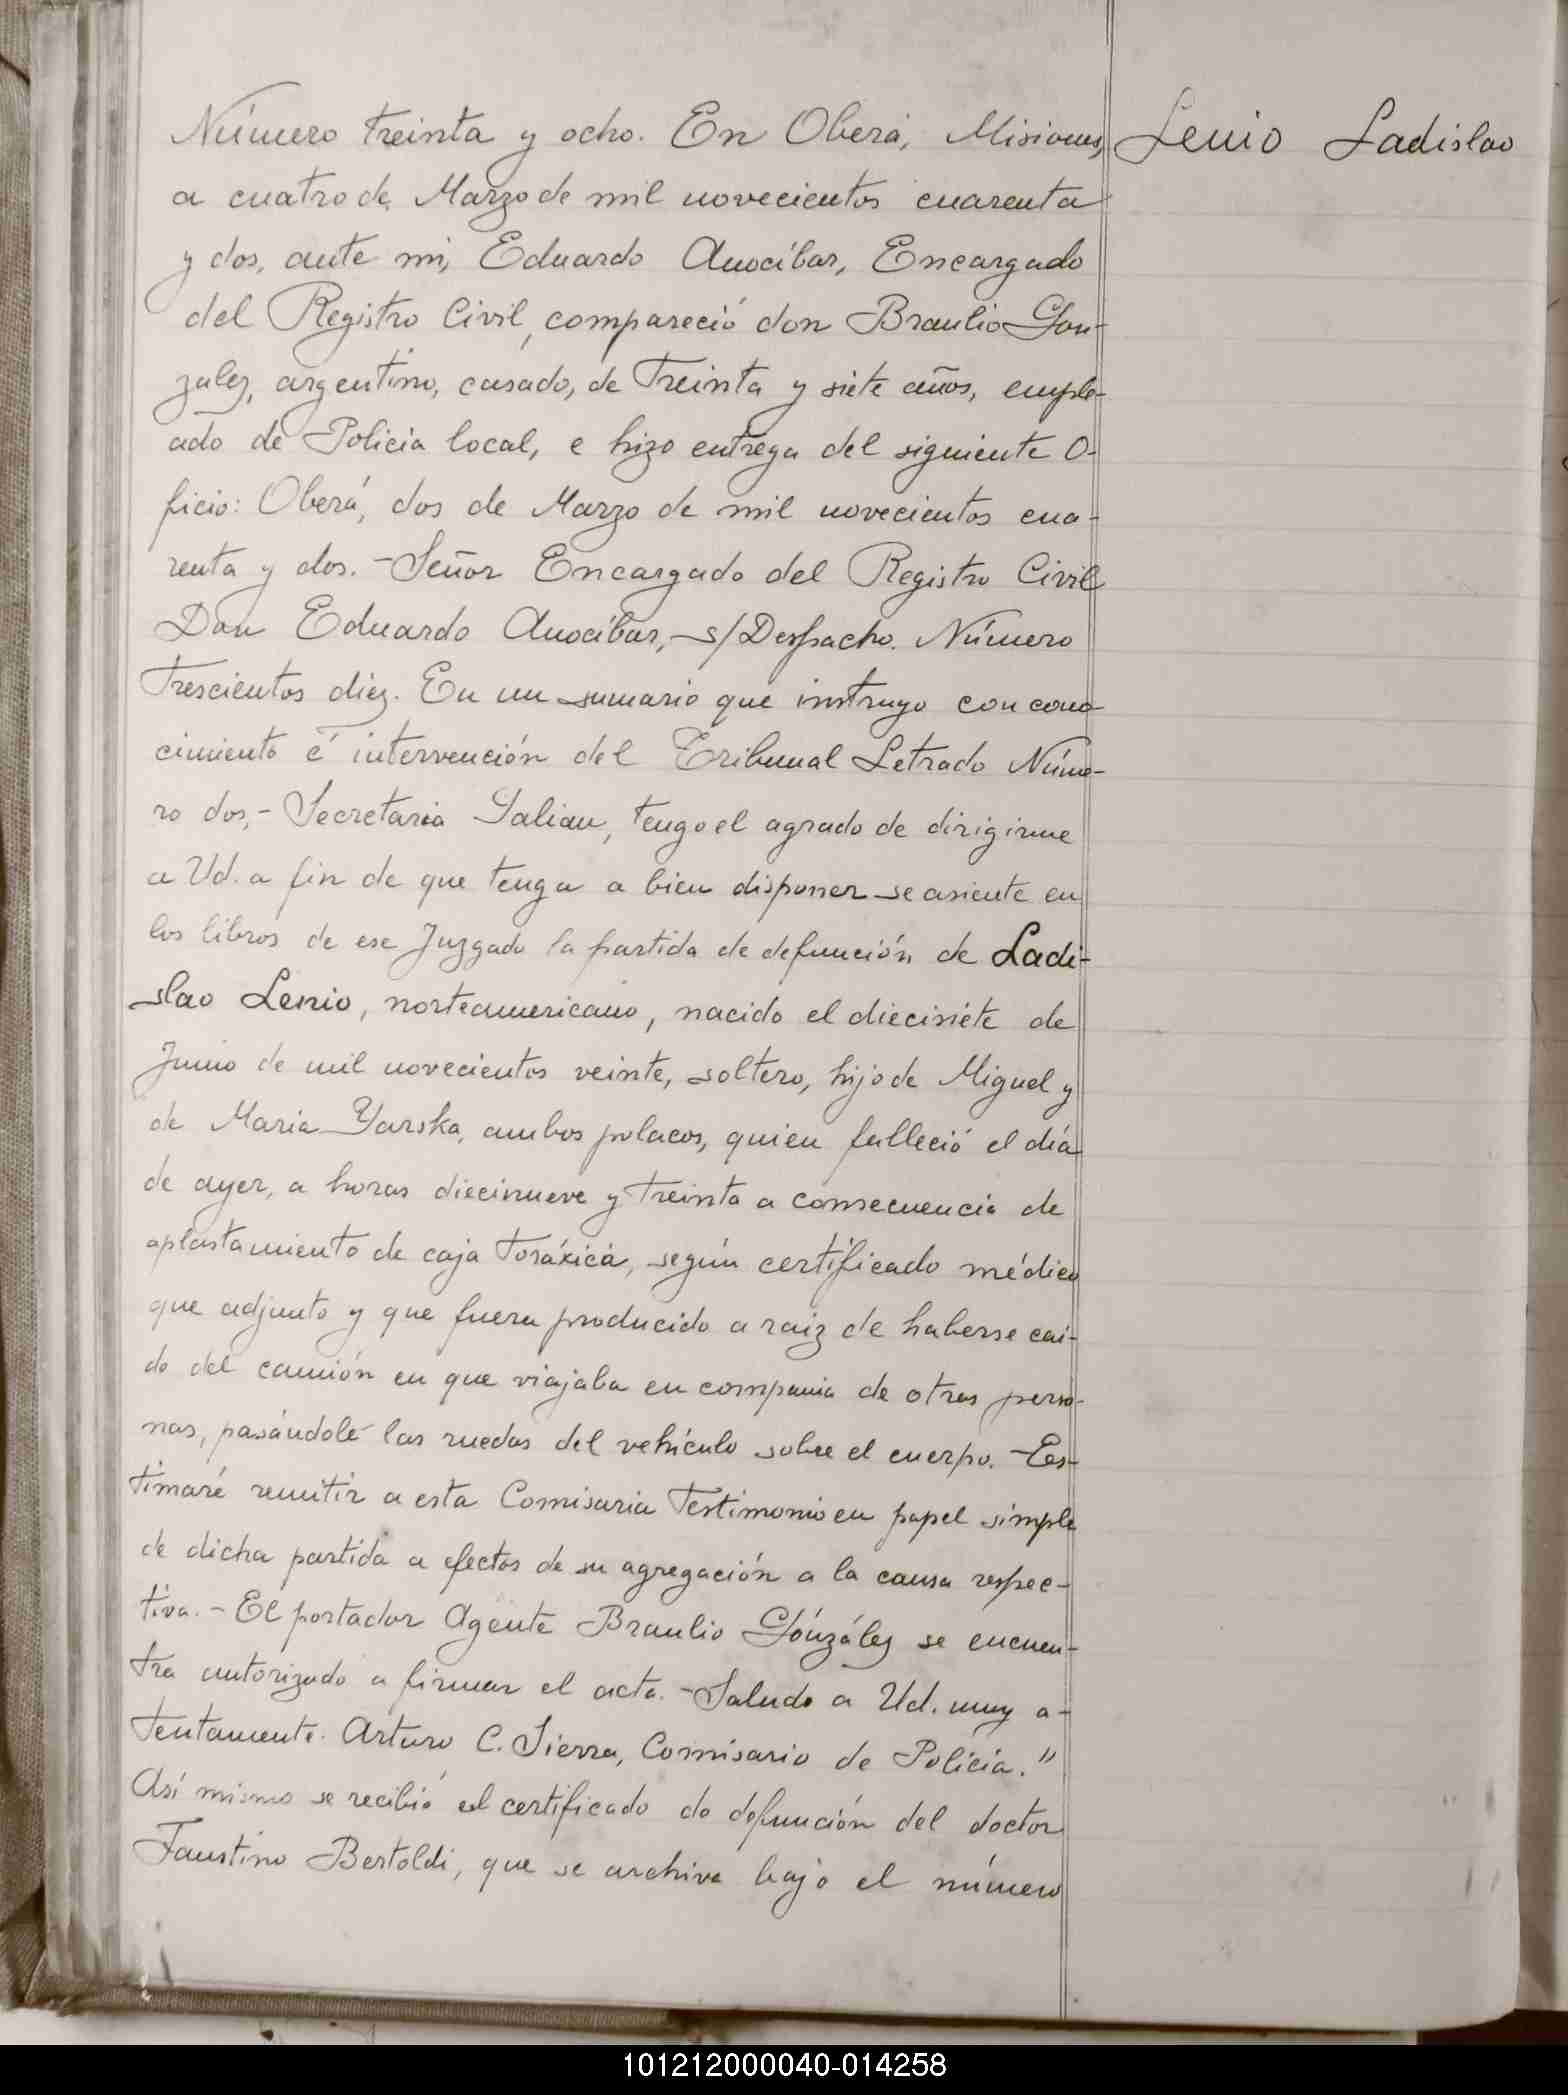 Número treinta y ocho. En Oberá, Misiones,
Lenio Ladislao
a cuatro de Marzo de mil novecientos cuarenta
y dos, ante mi, Eduardo Anocíbar, Encargado
del Registro Civil, compareció don Braulio Gon-
zalez, argentino, casado, de treinta y siete años, emple-
ado de Policia local, e hizo entrega del siguiente O-
ficio: Oberá, dos de Marzo de mil novecientos cua-
renta y dos. - Señor Encargado del Registro Civil
Don Eduardo Anocíbar, - s/Despacho. Número
trescientos diez. En un sumario que instruyo con cono-
cimiento é intervención del Tribunal Letrado Núme-
ro dos, - Secretaria Galian, tengo el agrado de dirigirme
a Ud. a fin de que tenga a bien disponer se asiente en
los libros de ese Juzgado la partida de defunción de Ladi-
slao Lenio, norteamericano, nacido el diecisiete de
Junio de mil novecientos veinte, soltero, hijo de Miguel y
de Maria Yarska, ambos polacos, quien falleció el día
de ayer, a horas diecinueve y treinta a consecuencia de
aplastamiento de caja toráxica, según certificado médico
que adjunto y que fuera producido a raiz de haberse cai-
do del camión en que viajaba en compania de otras perso-
nas, pasándole las ruedas del vehículo sobre el cuerpo. - Es-
timaré remitir a esta Comisaria testimonio en papel simple
de dicha partida a efectos de su agregación a la causa respec-
tiva. - El portador Agente Braulio Gónzález se encuen-
tra autorizado a firmar el acta. - Saludo a Ud. muy a-
tentamente. Arturo C. Sierra, Comisario de Policia."
Así mismo se recibió el certificado de defunción del doctor
Faustino Bertoldi, que se archiva bajo el número
101212000040-014258